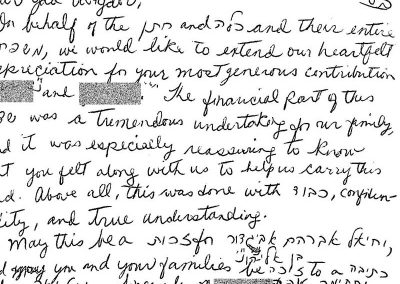 On behalf of the חתן and כלה and their entire
we would like to extend our heartfelt
appreciation for your most generous contribution
and The financial part of this
was a tremendous undertaking for our family,
it was especially reassuring to know
you felt along with us to help us carry this
Above all, this was done with כבוד, confiden-
ity, and true understanding.
May this be a זכות for יחיאל אברהם אביגדור,
you and your families be זוכה to a כתיבה